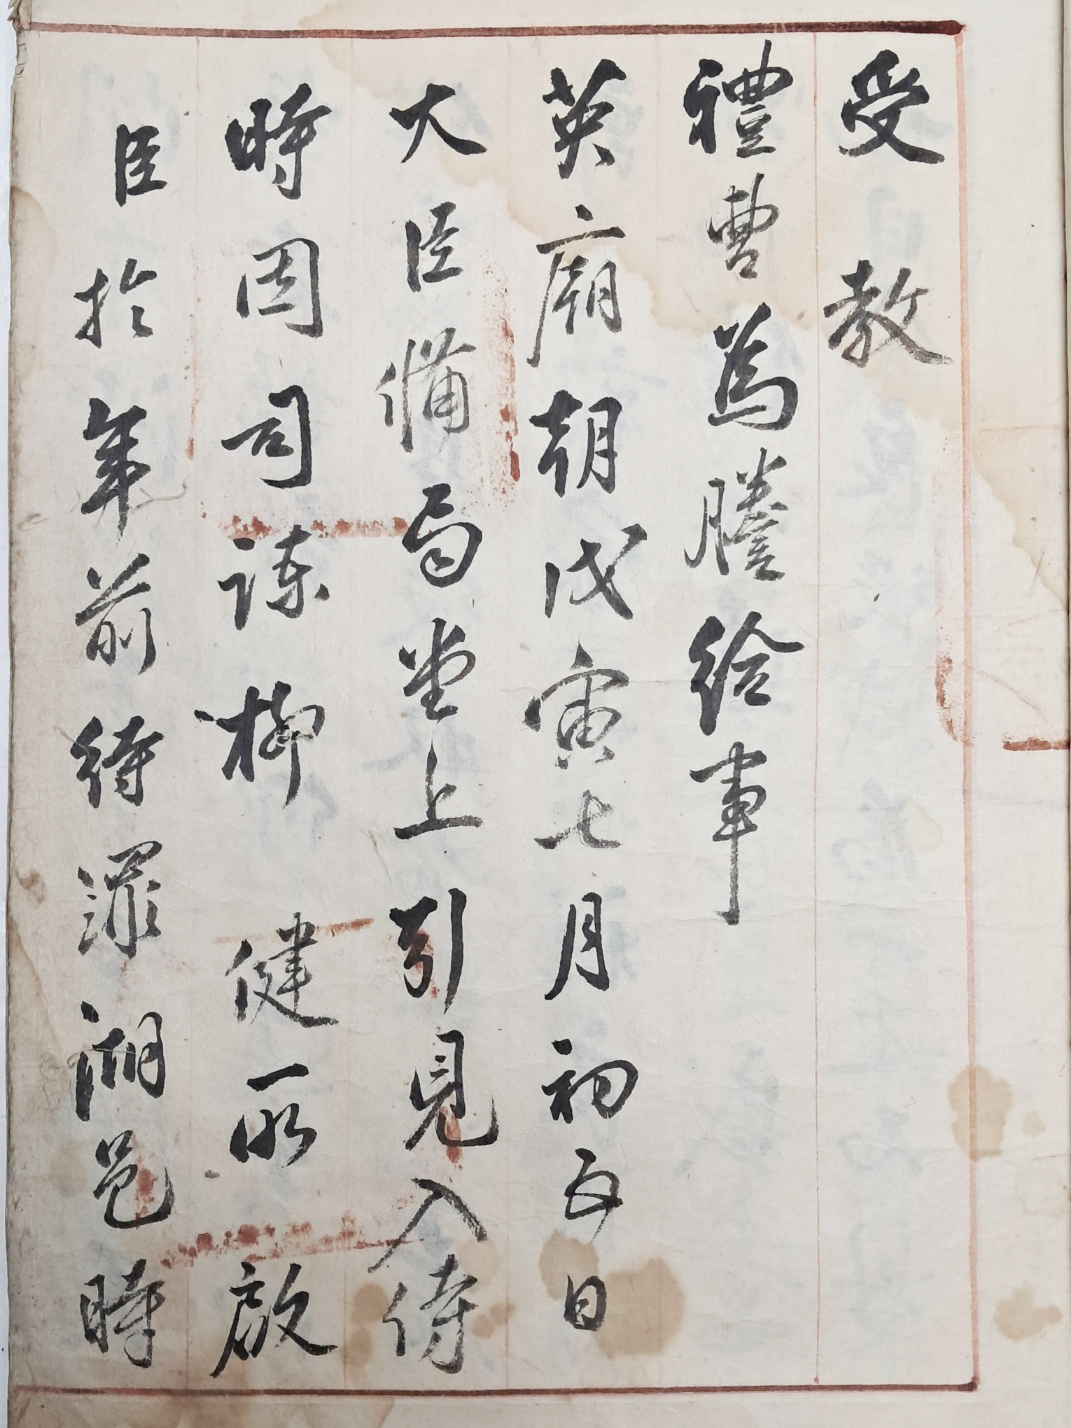 受教
禮曹爲謄給事
英廟朝戊寅七月初五日
大臣備局堂上引見入侍
時因司諫柳健所啟
臣於年前待罪湖邑時